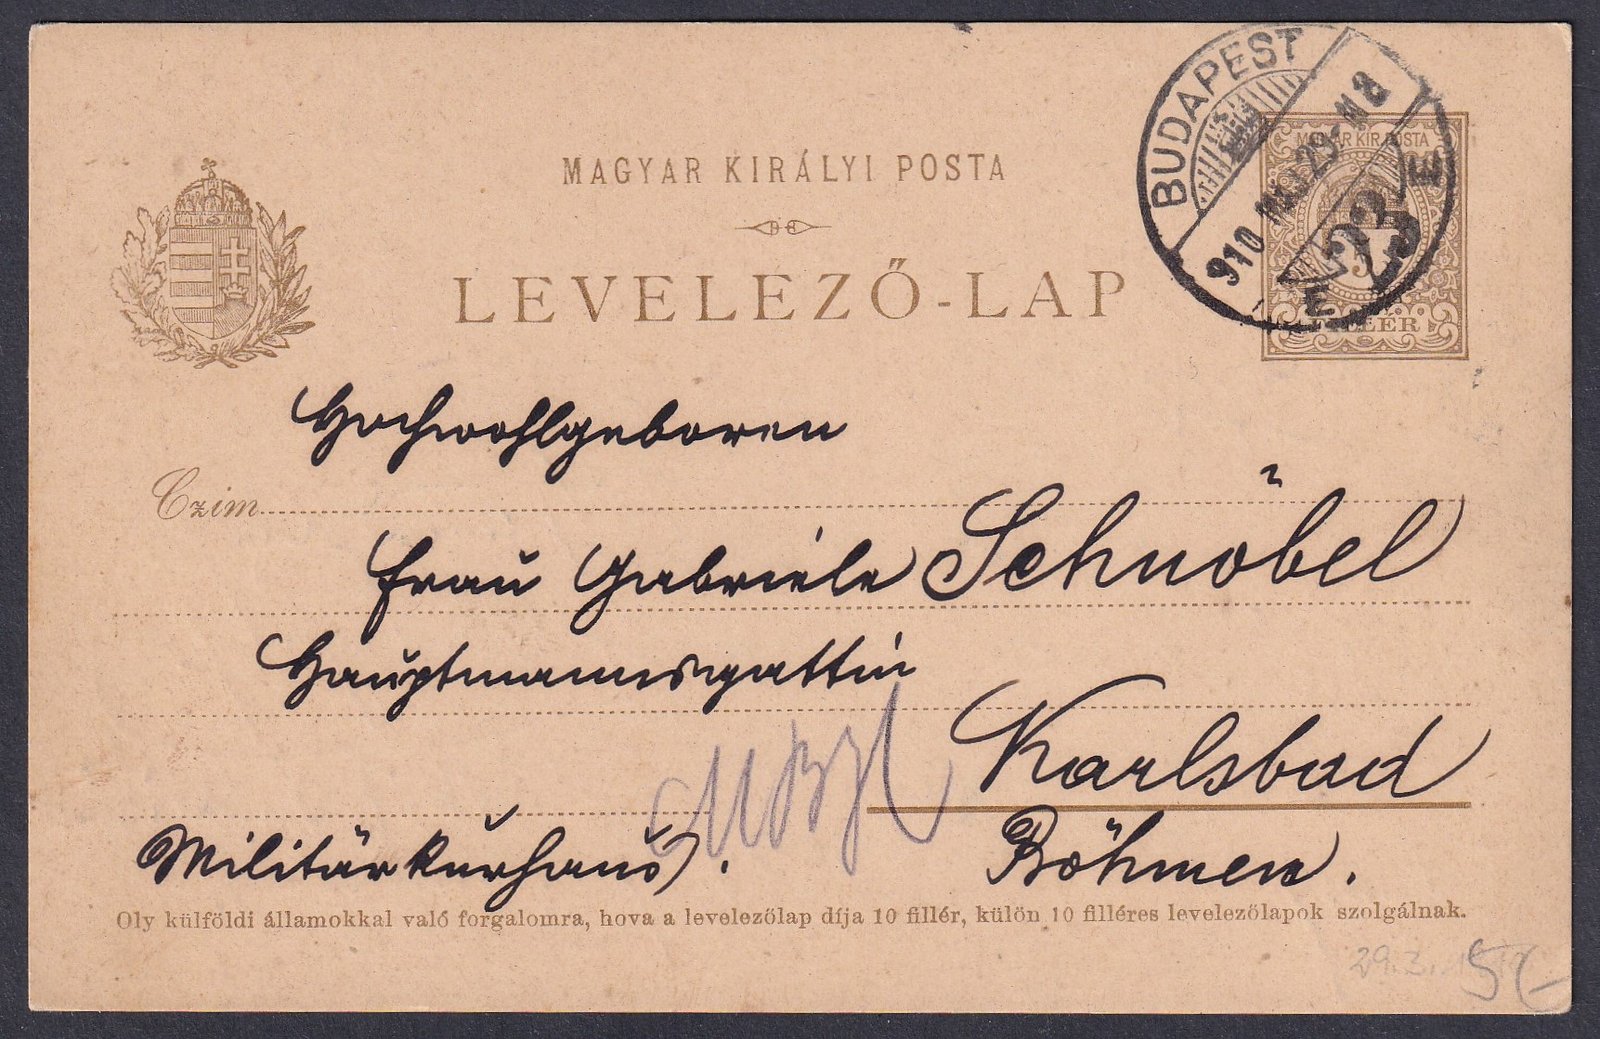 MAGYAR KIRÁLYI POSTA
LEVELEZŐ-LAP
BUDAPEST
910
29
MAGYAR KIR. POSTA
5
FILLÉR
Hochwohlgeboren
Czim
Frau Gabriele Schnöbel
Hauptmannsgattin
Karlsbad
Militärkurhaus.
Böhmen.
Oly külföldi államokkal való forgalomra, hova a levelezőlap díja 10 fillér, külön 10 filléres levelezőlapok szolgálnak.
29.3.